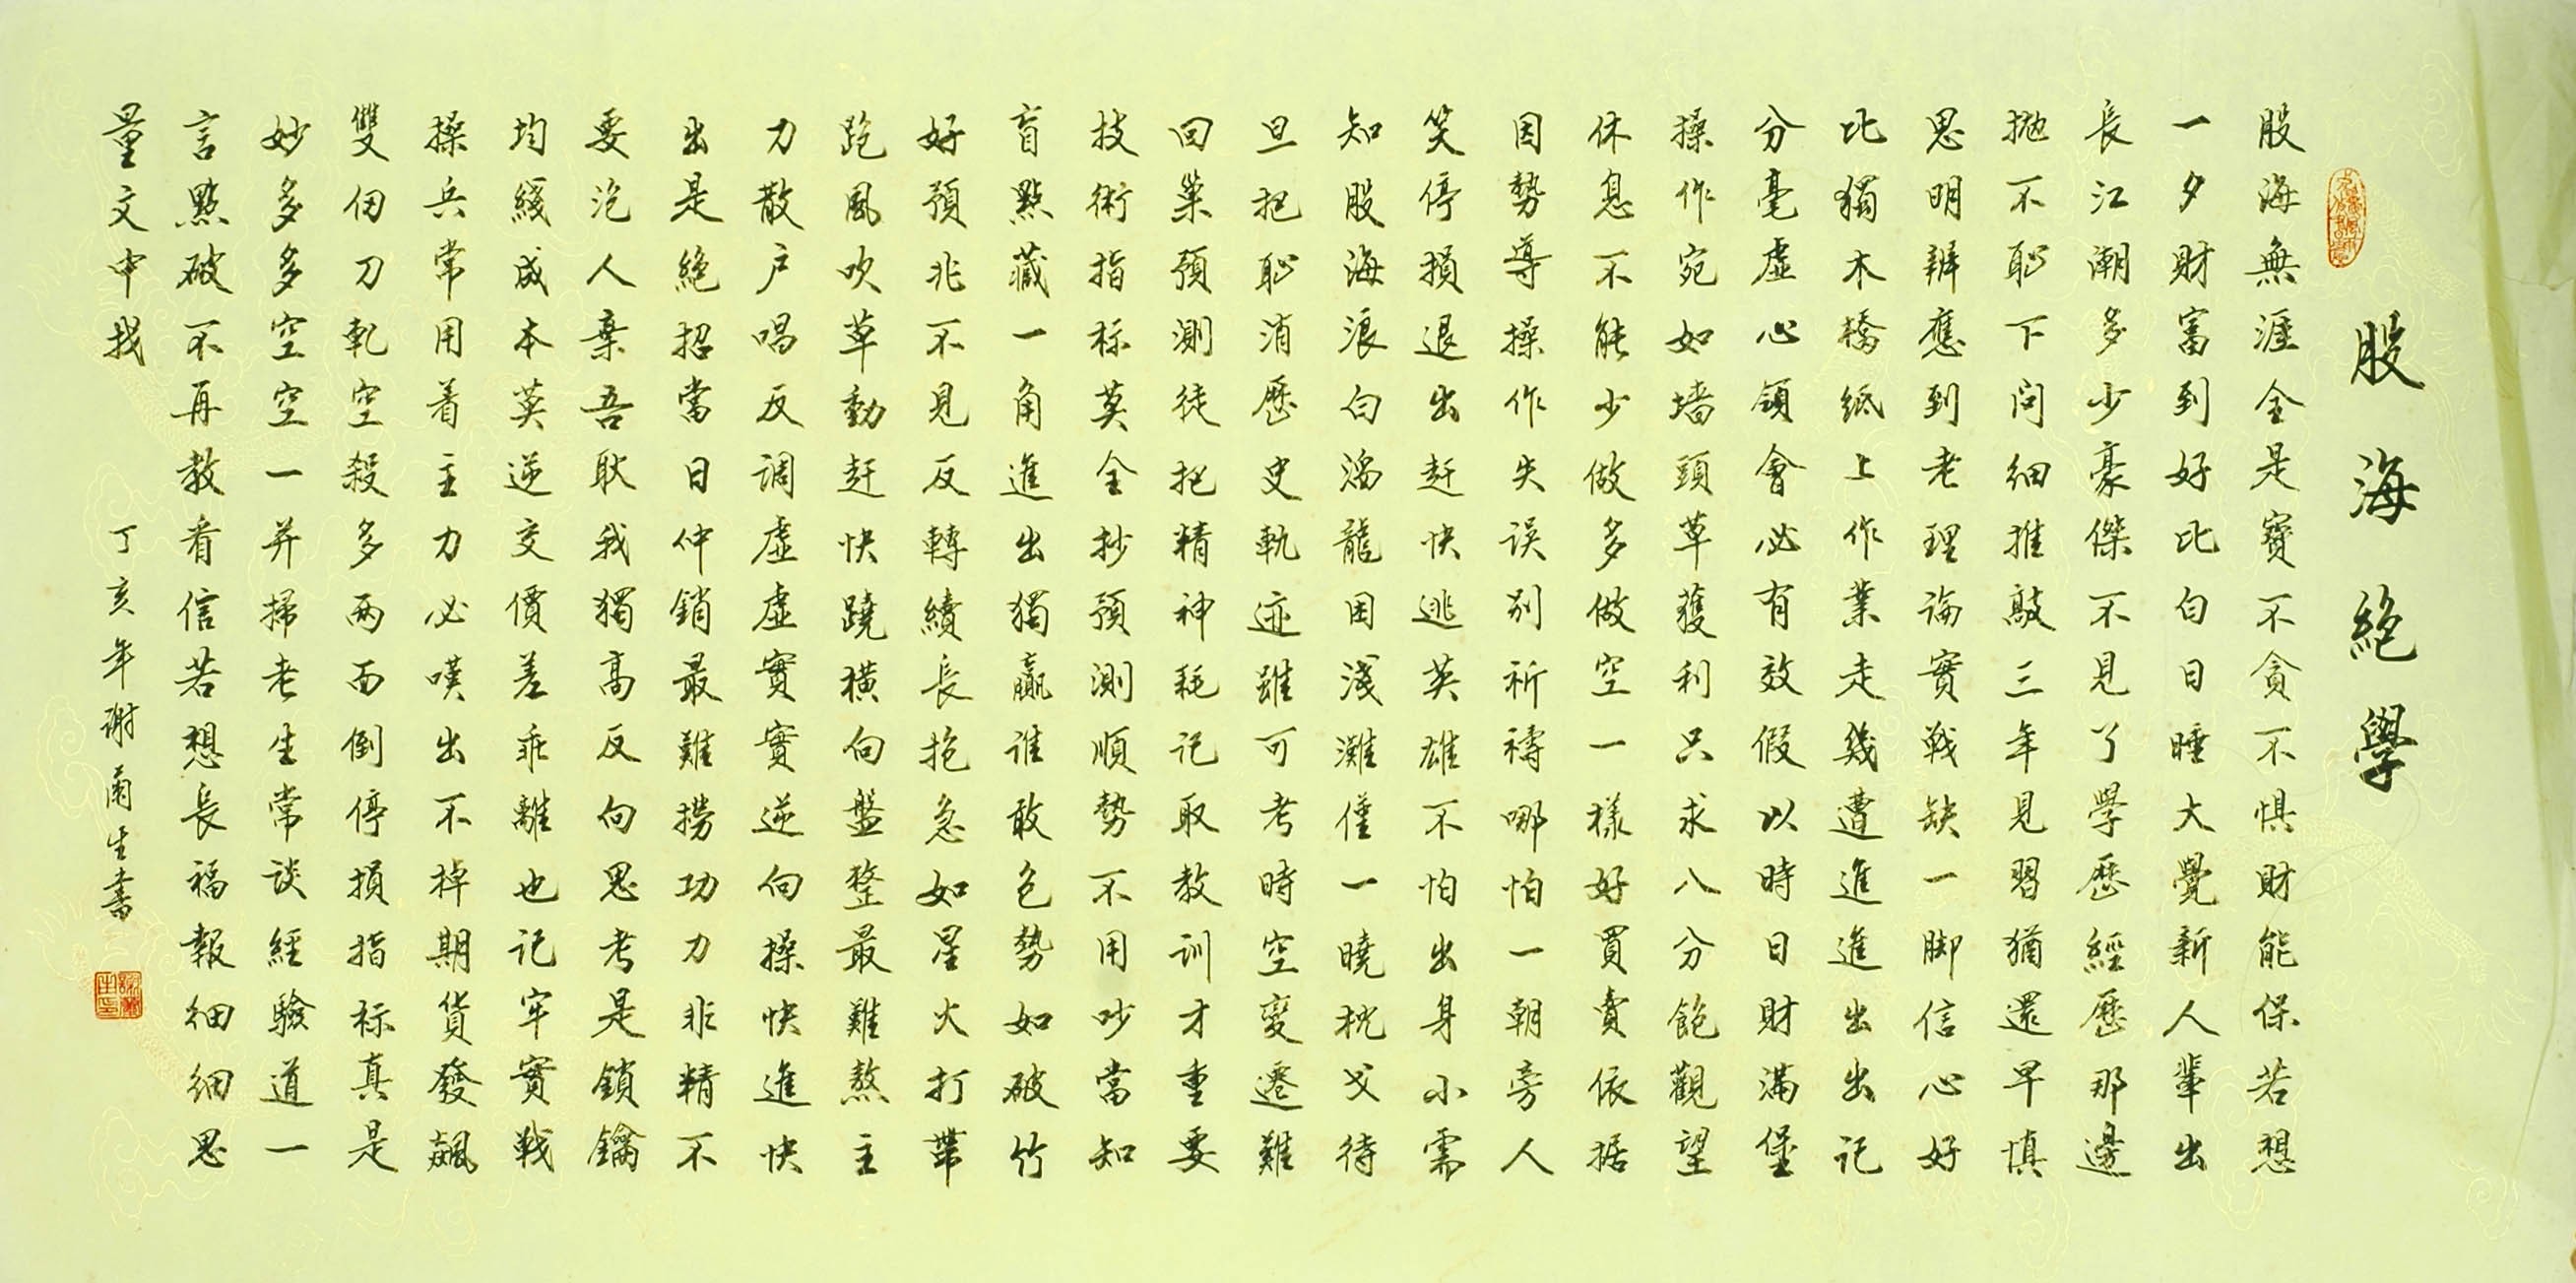 股海絕學
股海無涯全是寶不貪不惧財能保若想
一夕財富到好比白日睡大覺新人輩出
長江潮多少豪傑不見了學歷經歷那邊
拋不恥下问细推敲三年見習猶還早慎
思明辨應到老理論實戰缺一脚信心好
比獨木橋紙上作業走幾遭進進出出記
分毫虛心領會必有效假以時日財滿堡
操作宛如墙頭草獲利只求八分飽觀望
休息不能少做多做空一樣好買賣依据
因勢導操作失误别祈禱哪怕一朝旁人
笑停損退出赶快逃英雄不怕出身小需
知股海浪白滔龍困淺灘僅一曉枕戈待
旦把恥消歷史軌迹雖可考時空變遷難
回巢預測徒把精神耗记取教训才重要
技術指标莫全抄預測順勢不用吵當知
盲點藏一角進出獨贏谁敢色勢如破竹
好預兆不見反轉續長抱急如星火打帶
跑風吹草動赶快蹺横向盤整最難熬主
力散户唱反调虛虛實實逆向操快進快
出是絕招當日仲銷最難撈功力非精不
要泡人棄吾耿我獨高反向思考是鎖鑰
均綫成本莫逆交價差乖離也记牢實戰
操兵常用着主力必嘆出不掉期貨發飆
雙佃刀乾空殺多两面倒停損指标真是
妙多多空空一并掃老生常談經驗道一
言點破不再教看信若想長福報细细思
量文中找
丁亥年谢甫生書